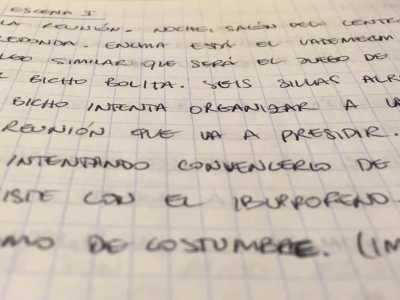 ESCENA I
LA REUNIÓN. NOCHE, SALÓN DEL CENTRO
REDONDA. ENCIMA ESTÁ EL VADEMECUM
SIMILAR QUE SERÁ EL JUEGO DE
BICHO BOLITA. SEIS SILLAS
BICHO INTENTA ORGANIZAR A
REUNIÓN QUE VA A PRESIDIR.
INTENTANDO CONVENCERLO DE
CON EL IBUPROFENO.
DE COSTUMBRE.